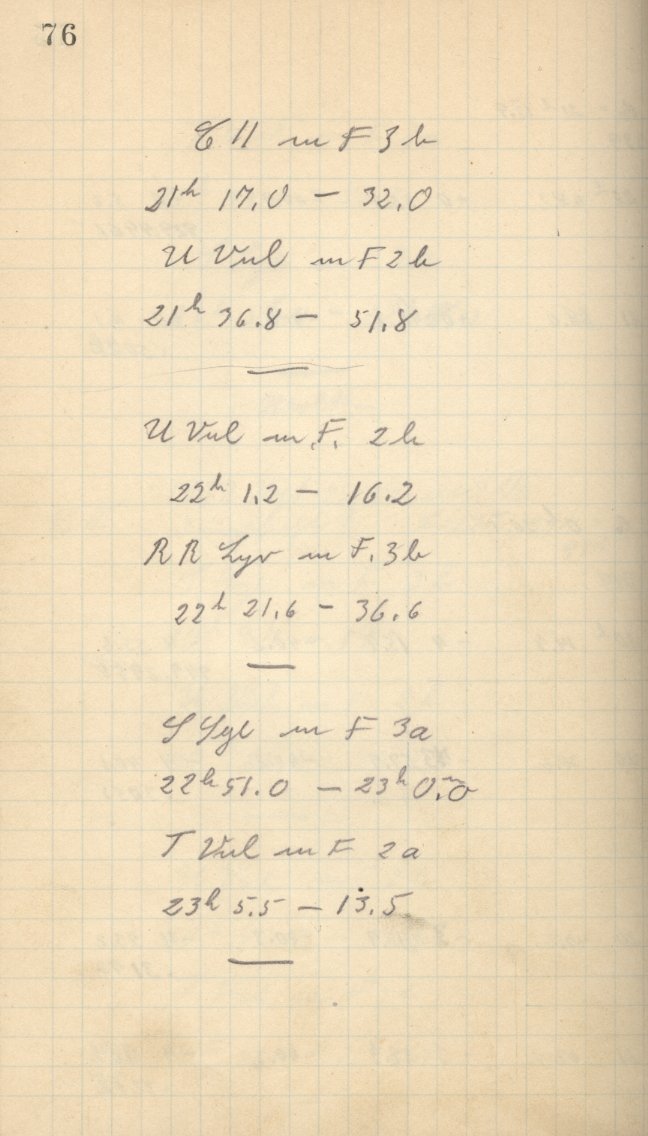 76
C 11 in F 3 b
21h 17.0 — 32.0
U Vul in F 2 b
21h 36.8 — 51.8
U Vul in F. 2 b
22h 1.2 — 16.2
RR Lyr in F. 3 b
22h 21.6 — 36.6
S Sge in F 3a
22h 51.0 — 23h 0.m0
T Vul in F 2a
23h 5.5 — 13.5